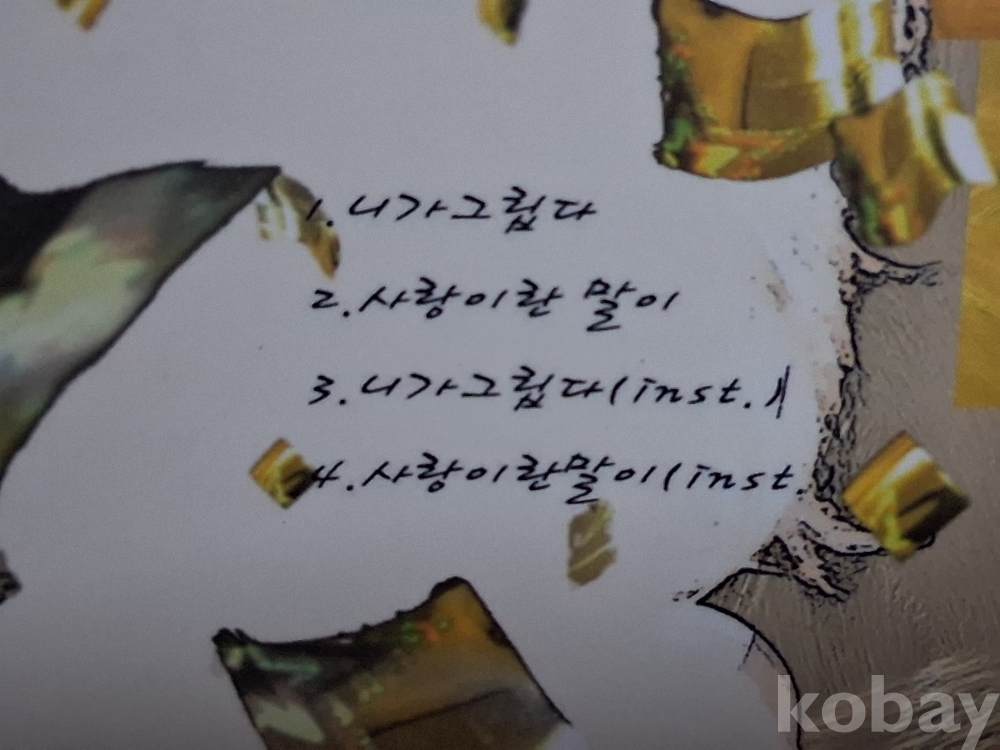 1. 니가그립다
2. 사랑이란 말이
3. 니가그립다(inst.)
4. 사랑이란말이(inst.
kobay